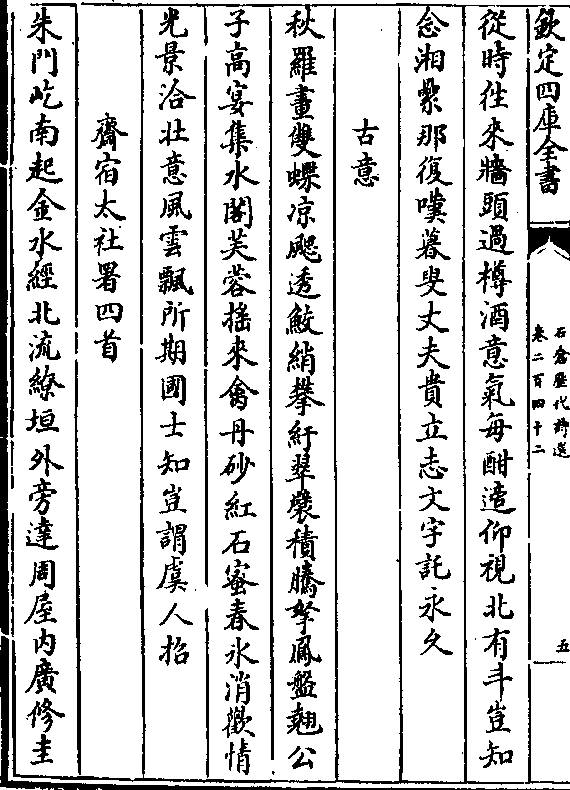 欽定四庫全書
石倉歷代詩選
卷二百四十二
五
從時往來牆頭過樽酒意氣每酣遣仰視北有斗豈知
念湘纍那復嘆暮叟丈夫貴立志文字託永久
古意
秋羅畫雙蝶凉颸透鮫綃攀紆翠襞積騰拏鳳盤翹公
子高宴集水閣芙蓉揺來禽丹砂紅石蜜春氷消微情
光景洽壯意風雲飄所期國士知豈謂虞人招
齋宿太社署四首
朱門屹南起金水經北流繚垣外旁達周屋内廣修圭